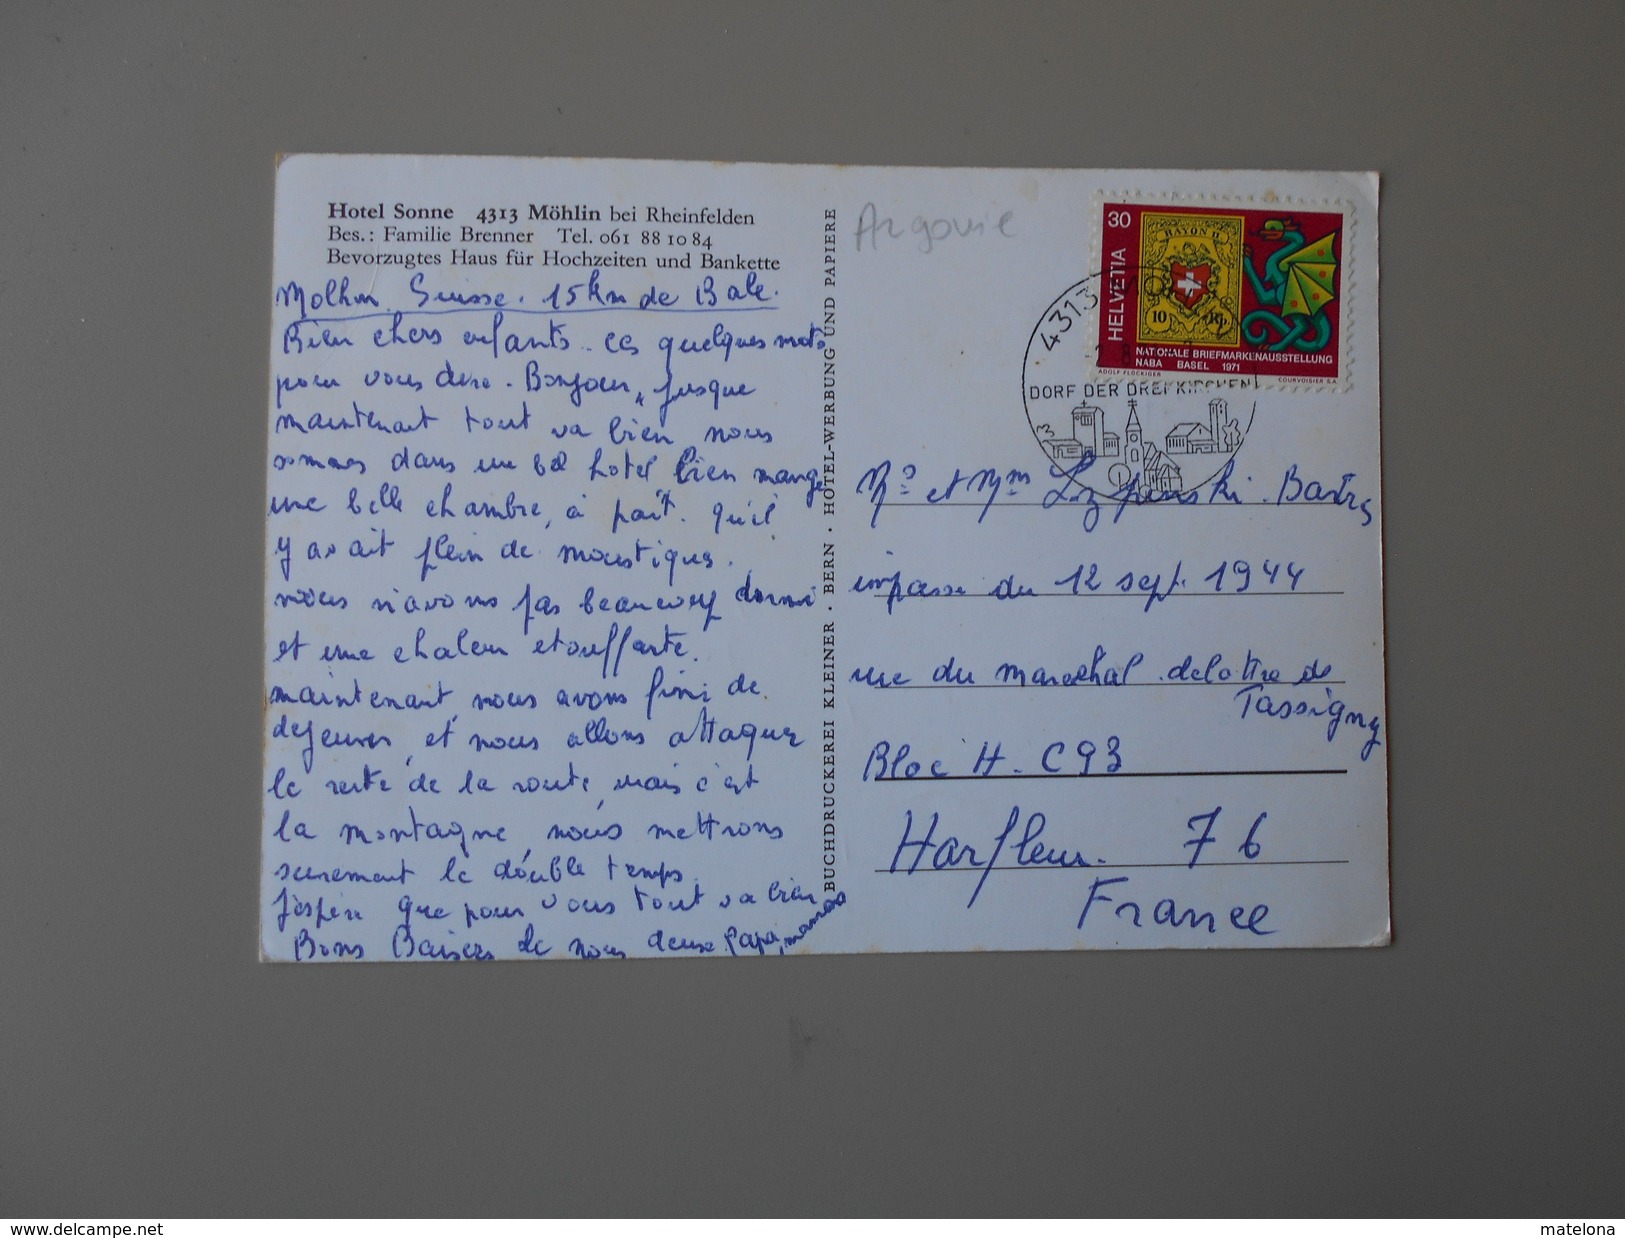 Hotel Sonne 4313 Möhlin bei Rheinfelden
Bes.: Familie Brenner Tel. 061 88 10 84
Bevorzugtes Haus für Hochzeiten und Bankette
Molhin Suisse. 15 km de Bale.
Bien chers enfants. ces quelques mots
pour vous dire. Bonjour, jusque
maintenant tout va bien nous
sommes dans un bel hotel bien mangé
une belle chambre, à part. qu'il
y avait plein de moustiques.
nous n'avons pas beaucoup dormi
et une chaleur etouffante.
maintenant nous avons fini de
dejeuner, et nous allons attaquer
le reste de la route, mais c'est
la montagne, nous mettrons
surement le double temps.
J'espère que pour vous tout va bien
Bons Baisers de nous deux Papa, maman
BUCHDRUCKEREI KLEINER · BERN · HOTEL-WERBUNG UND PAPIERE
Argovie
30
HELVETIA
RAYON II
10 Rp
NATIONALE BRIEFMARKENAUSSTELLUNG
NABA BASEL 1971
ADOLF FLÜCKIGER
COURVOISIER S.A.
4313
DORF DER DREI KIRCHEN
et Mme
impasse du 12 sept. 1944
rue du marechal delattre de
Tassigny
Bloc H. C93
Harfleur. 76
France
www.delcampe.net
matelona